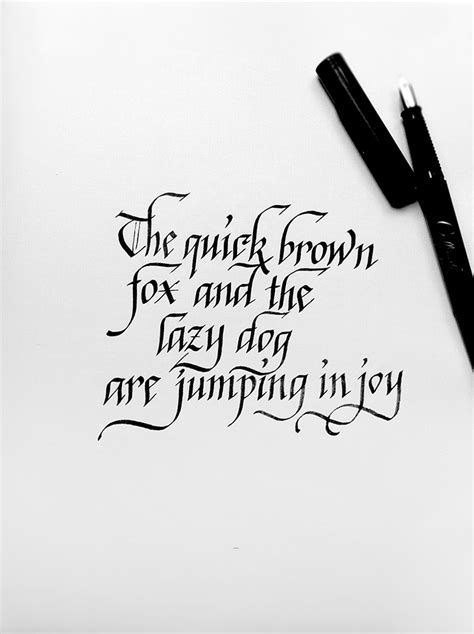 The quick brown
fox and the
lazy dog
are jumping in joy